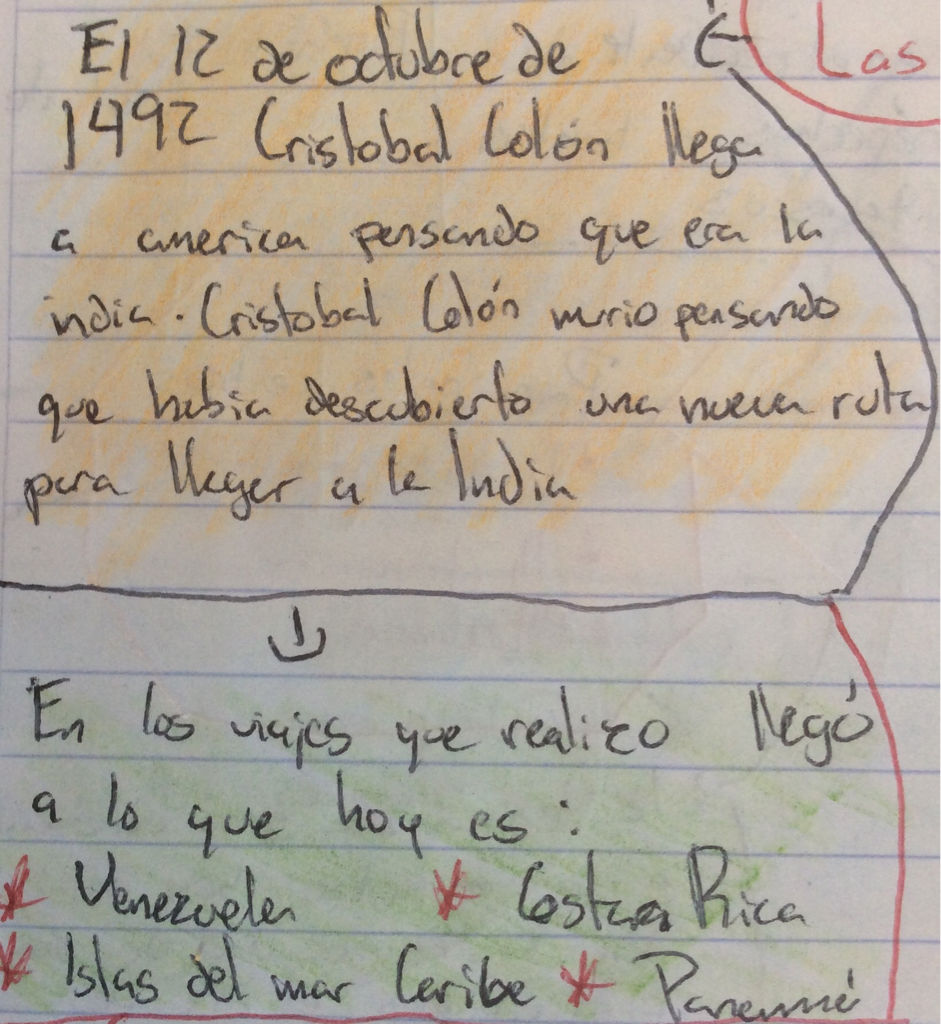 El 12 de octubre de
1492 Cristobal Colón llega
a america pensando que era la
india. Cristobal Colón murio pensando
que habia descubierto una nueva ruta
para llegar a la India
Las
En los viajes que realizo llegó
a lo que hoy es:
* Venezuela * Costa Rica
* Islas del mar Caribe * Panamá